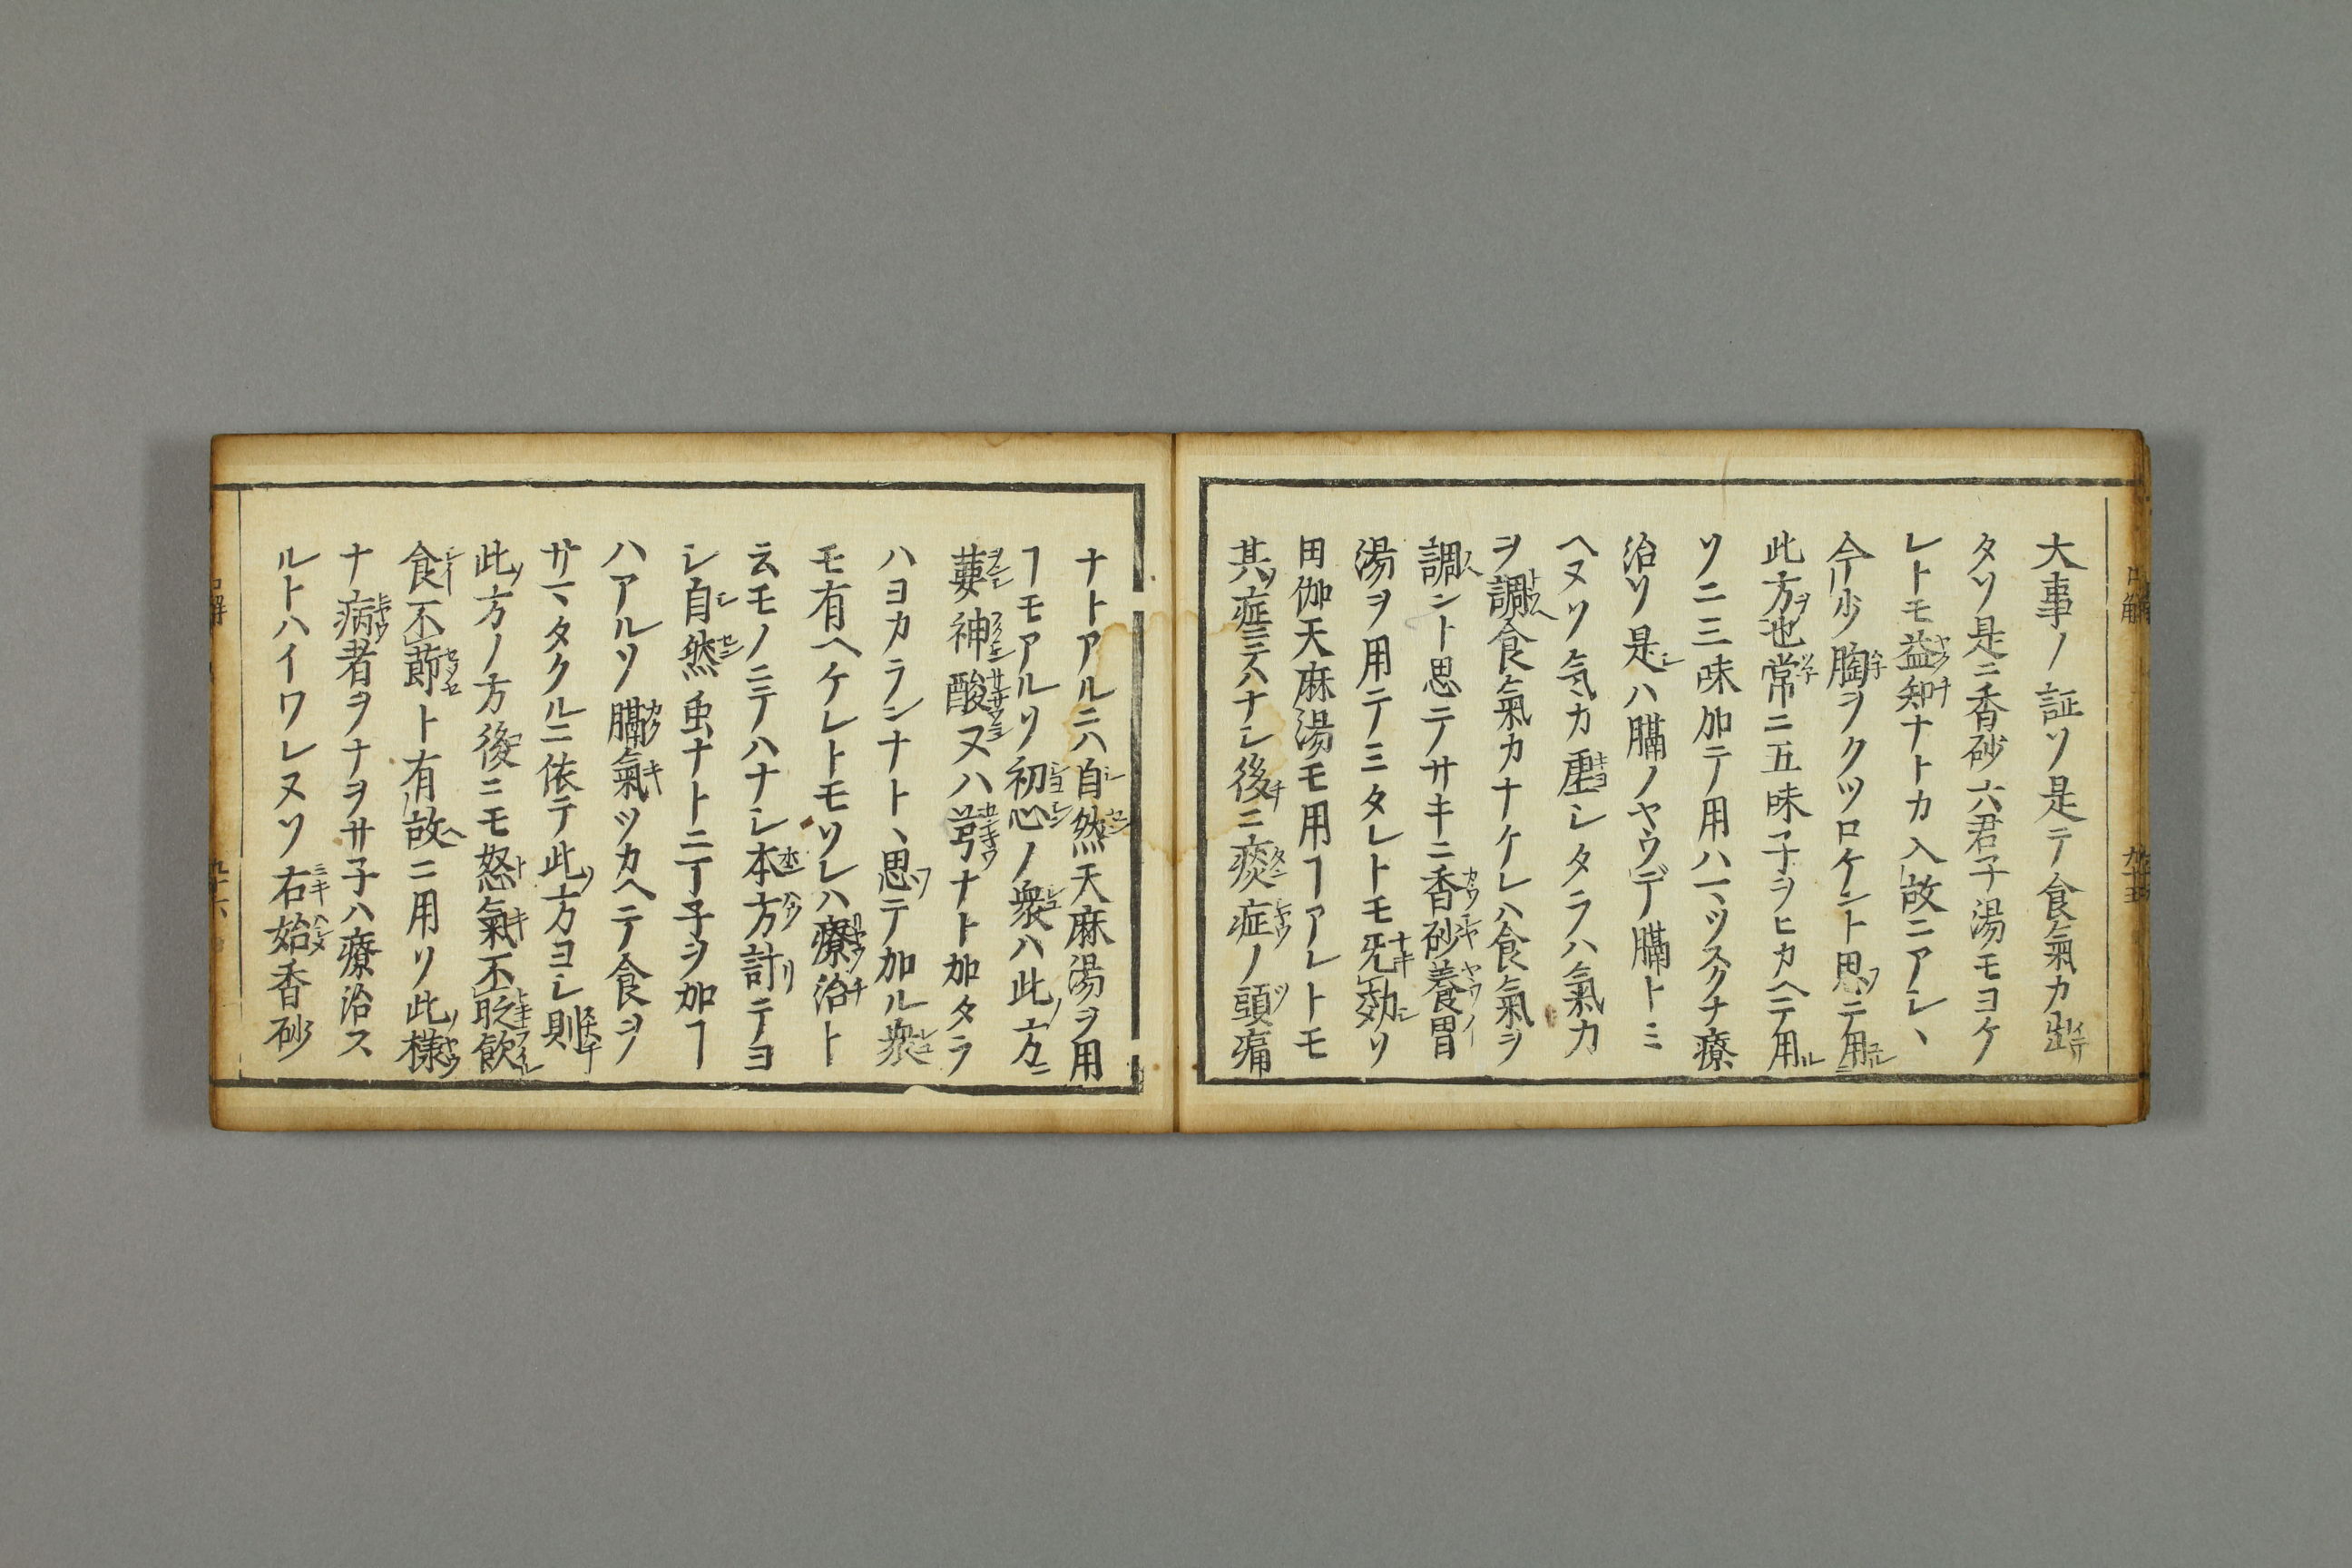 大事ノ証ソ是テ食氣カ出
タソ是ニ香砂六君子湯モヨケ
レトモ益知ナトカ入故ニアシヽ
今少胸ヲクツロケント思テ用
此方也常ニ五味子ヲヒカヘテ用
ソ二三味加テ用ハマツスクナ療
治ソ是ハ膈ノヤウデ膈トミ
ヘヌソ気カ虚シタラハ氣カ
ヲ調食氣カナケレハ食氣ヲ
調ント思テサキニ香砂養胃
湯ヲ用テミタレトモ无効ソ
田伽天麻湯モ用ヿアレトモ
其症ニテハナシ後ニ痰症ノ頭痛
ナトアルニハ自然天麻湯ヲ用
ヿモアルソ初心ノ衆ハ此方ニ
神 酸 又ハ芎ナト加タラ
ハヨカランナトヽ思テ加ル衆
モ有ヘケレトモソレハ療治ト
云モノニテハナシ本方計テヨ
シ自然虫ナトニ丁子ヲ加ヿ
ハアルソ膈氣ツカヘテ食ヲ
サマタクルニ依テ此方ヨシ則
此方ノ方後ニモ怒氣不 飲
食不節ト有故ニ用ソ此様
ナ病者ヲナヲサ子ハ療治ス
ルトハイワレヌソ右始香砂